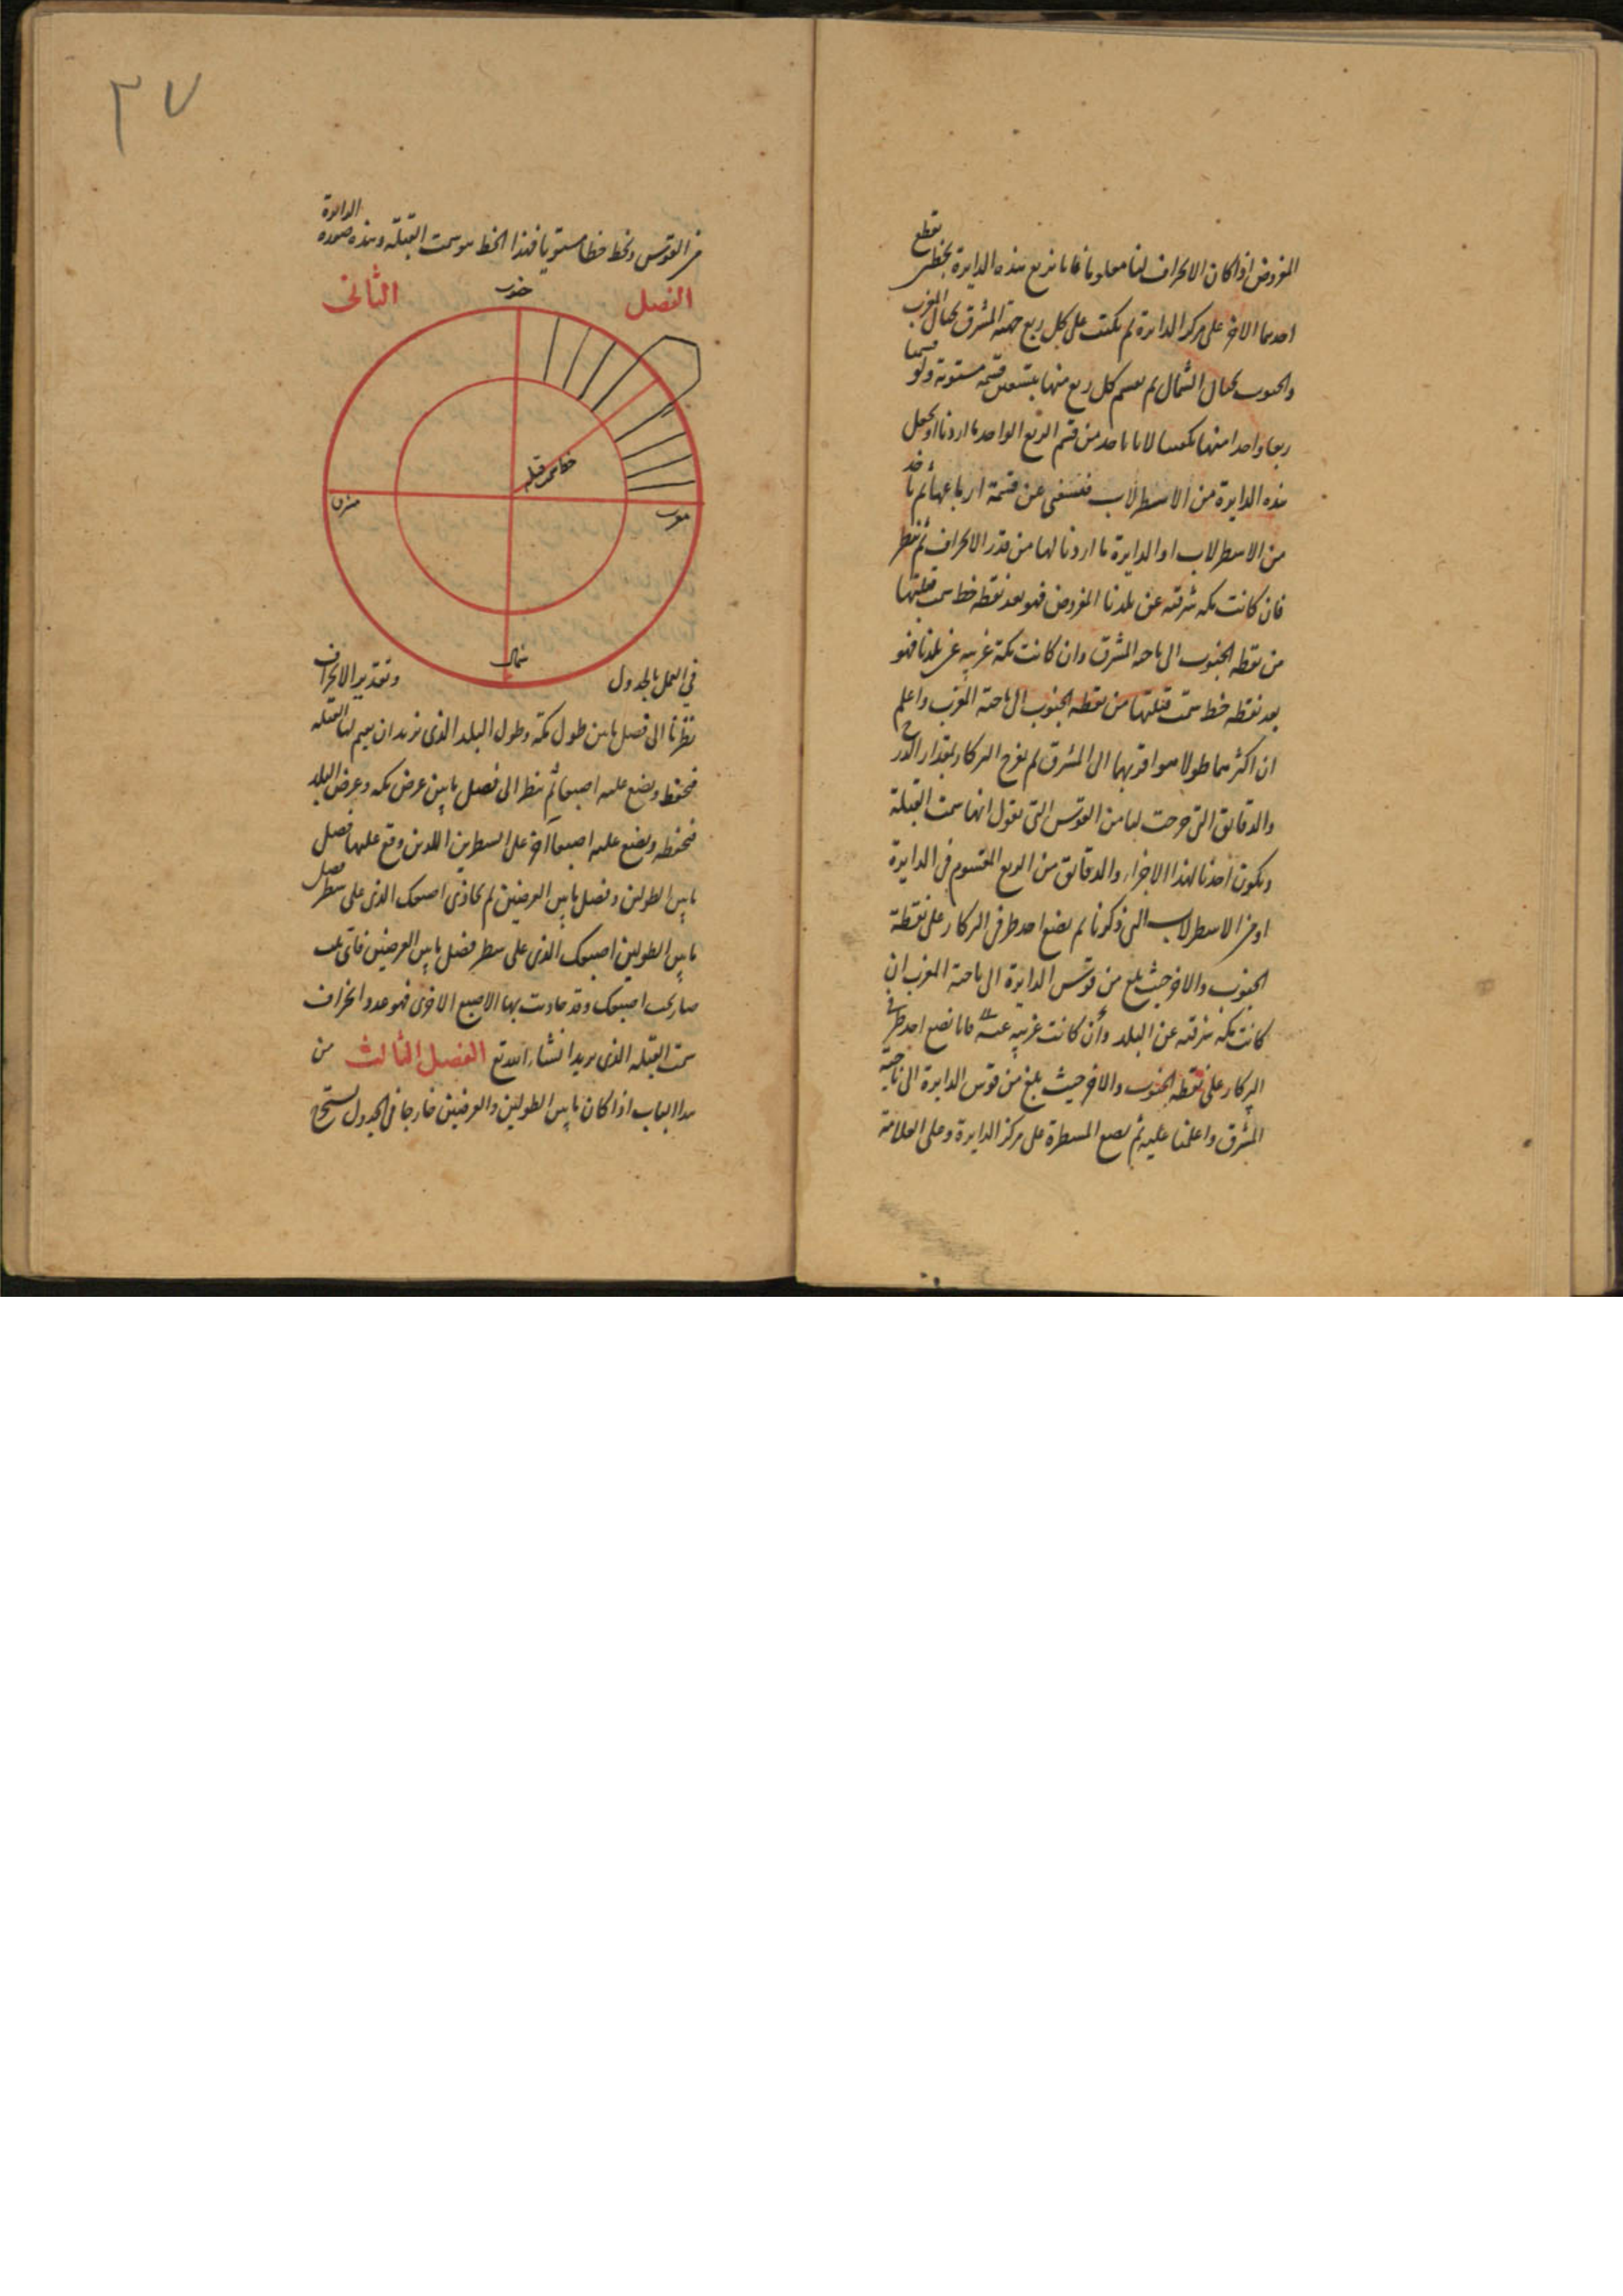 المفروض اذا كان الانحراف لنا معلوما فانا نربع هذه الدايرة بخطين يقطع
احدهما الاخر على مركز الدايرة ثم نكتب على كل ربع جهته المشرق بحيال المغرب
والجنوب بحيال الشمال ثم نقسم كل ربع منها بتسعين قسمة مستوية ولو قسمنا
ربعا واحدا منها لكفينا لانا ناخذ من قسم الربع الواحد ما اردنا او نجعل
هذه الدايرة من الاسطرلاب فنستغنى عن قسمة ارباعها ثم ناخذ
من الاسطرلاب او الدايرة ما اردنا لها من قدر الانحراف ثم ننظر
فان كانت مكه شرقيه عن بلدنا المفروض فهو بعد نقطه خط سمت قبلتها
من نقطه الجنوب الى ناحيه المشرق وان كانت مكة غربيه عن بلدنا فهو
بعد نقطه خط سمت قبلتها من نقطه الجنوب الى ناحية المغرب واعلم
ان اكثرهما طولا هو اقربهما الى المشرق ثم نفرج البركار بمقدار الدرج
والدقايق التى خرجت لنا من القوس التى نقول انها سمت القبلة
ويكون اخذنا لهذا الاجزاء والدقائق من الربع المقسوم فى الدايرة
او من الاسطرلاب التى ذكرنا ثم نضع احد طرفى البركار على نقطة
الجنوب والاخر حيث بلغ من قوس الدايرة الى ناحية المغرب ان
كانت مكه شرقيه عن البلد وان كانت غربيه عنه فانا نضع احد طرفى
البركار على نقطه الجنوب والاخر حيث بلغ من قوس الدايرة الى ناحية
المشرق واعلمنا عليه ثم نضع المسطرة على مركز الدايرة وعلى العلامة
٣٧
من القوس ونخط خطا مستويا فهذا الخط هو سمت القبله وهذه صورة الدايرة
الفصل الثانى
جنوب
خط سمت قبله
مشرق
مغرب
شمال
فى العمل بالجدول وتقدير الانحراف
نظرنا الى فضل ما بين طول مكة وطول البلد الذى نريد ان نقيم لها القبله
فنحفظه ونضع عليه اصبعا ثم ننظر الى فضل ما بين عرض مكه وعرض البلد
فنحفظه ونضع عليه اصبعا اخر على السطرين اللذين وقع عليهما فضل
ما بين الطولين وفضل ما بين العرضين ثم تحاذى اصبعك الذى على سطر فضل
ما بين الطولين اصبعك الذى على سطر فضل ما بين العرضين فاى بيت
صار تحت اصبعك وقد حاذيت بها الاصبع الاخرى فهو عدد انحراف
سمت القبله الذى تريد انشاء الله تع الفصل الثالث من
هذا الباب اذا كان ما بين الطولين والعرضين خارجا فى الجدول نستخرج